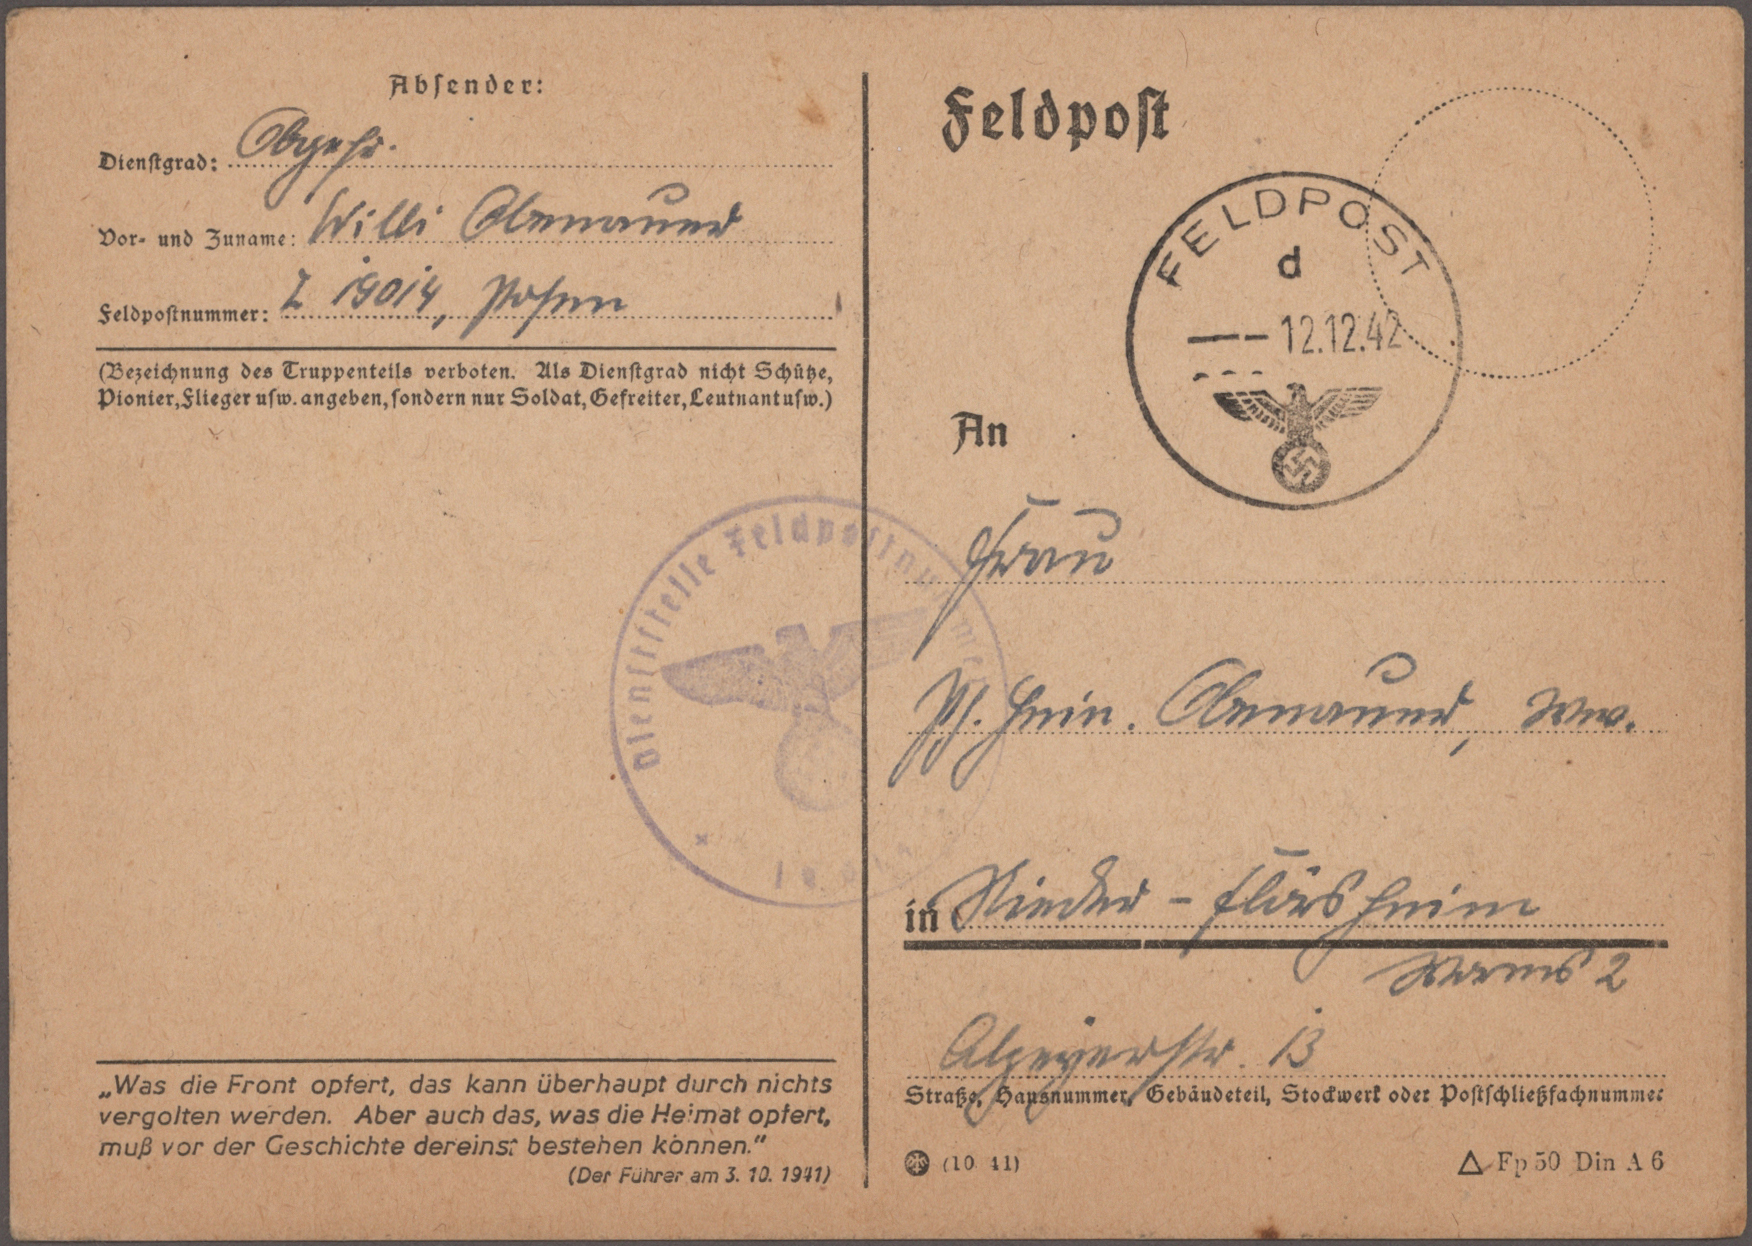 Absender:
Dienstgrad: Obgefr.
Vor- und Zuname: Willi Obenauer
Feldpostnummer: Z 19014, Posen
(Bezeichnung des Truppenteils verboten. Als Dienstgrad nicht Schütze,
Pionier, Flieger usw. angeben, sondern nur Soldat, Gefreiter, Leutnant usw.)
„Was die Front opfert, das kann überhaupt durch nichts
vergolten werden. Aber auch das, was die Heimat opfert,
muß vor der Geschichte dereinst bestehen können.“
(Der Führer am 3. 10. 1941)
Dienststelle Feldpostnummer
Feldpost
FELDPOST
d
12.12.42
An
Frau
Ph. Hein. Obenauer, Ww.
in Nieder-Flörsheim
Worms 2
Alzeyerstr. 13
Straße, Hausnummer, Gebäudeteil, Stockwerk oder Postschließfachnummer
(10 41)
Fp 50 Din A 6